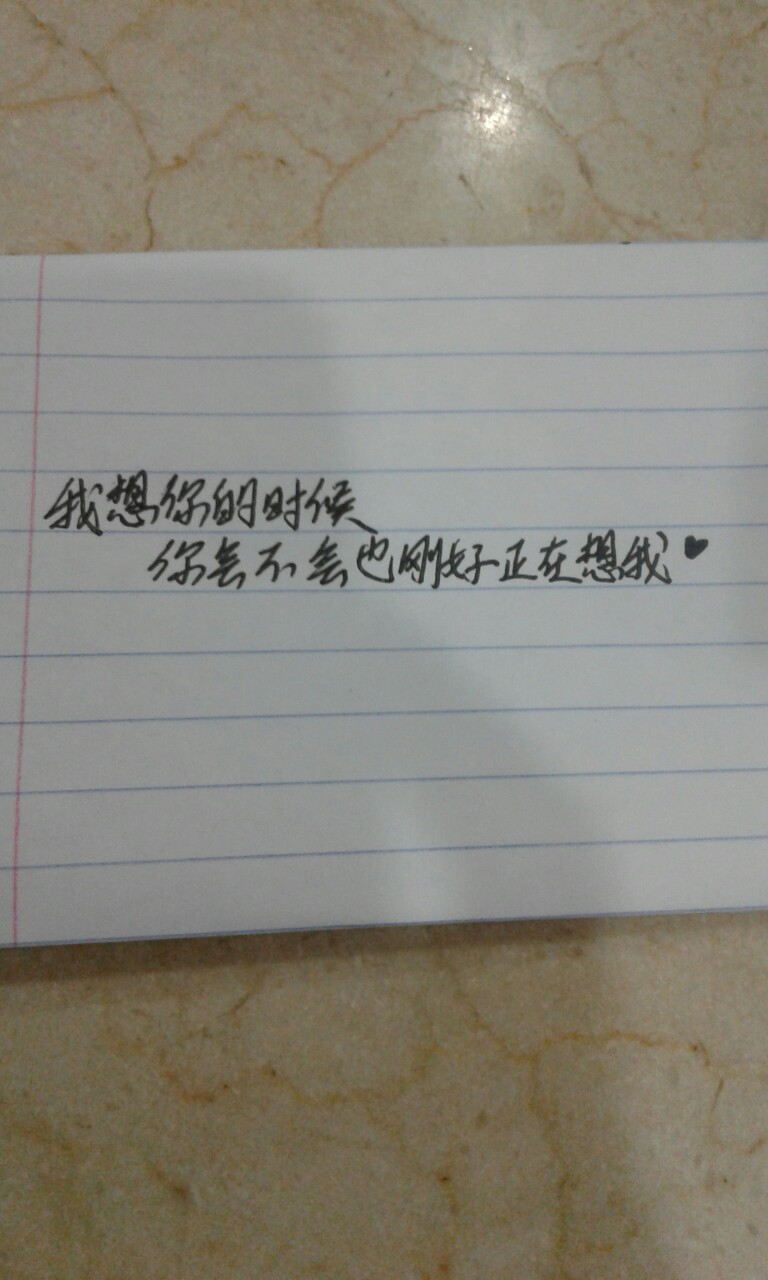 我想你的时候
你会不会也刚好正在想我♥